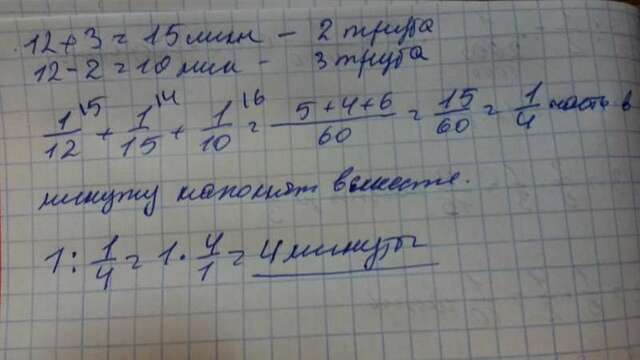 12+3=15 мин - 2 труба
12-2=10 мин - 3 труба
1/12 \5 + 1/15 \4 + 1/10 \6 = 5+4+6/60 = 15/60 = 1/4 часть в
минуту наполнят вместе.
1 : 1/4 = 1 · 4/1 = 4 минуты